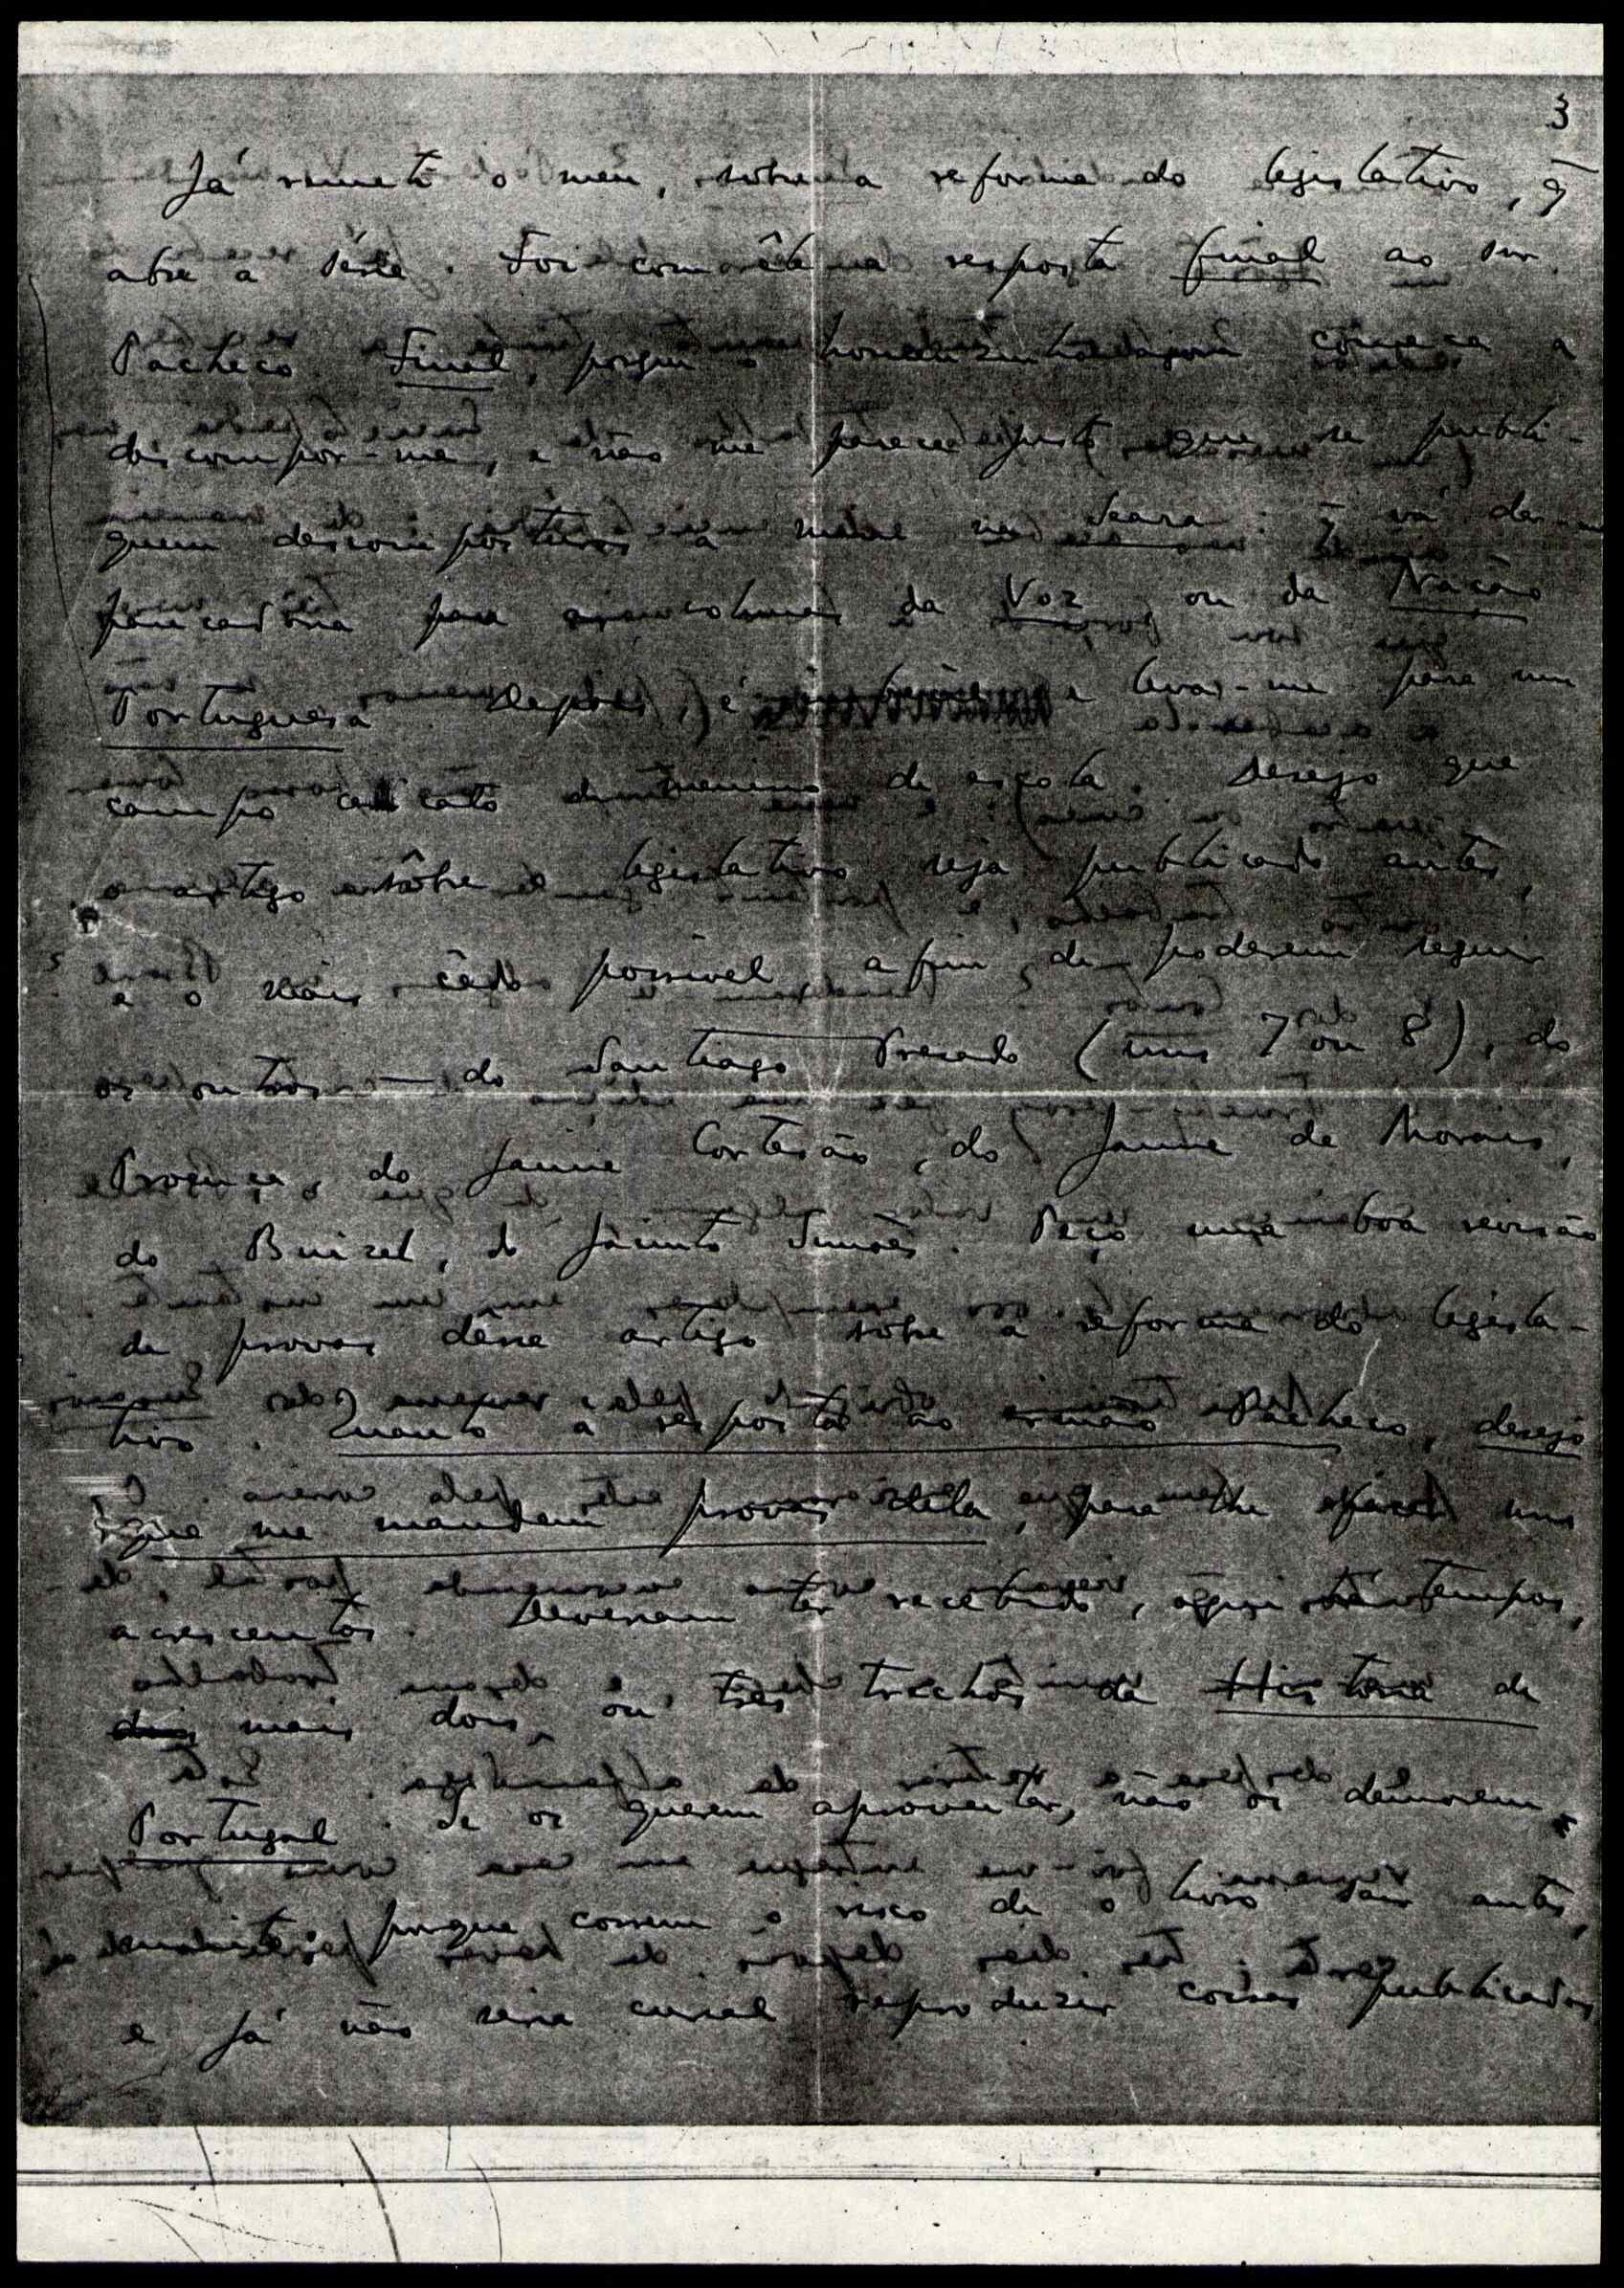 3
Já remeti o meu, sobre a reforma do legislativo, q̃
abre a série. Foi com êle uma resposta final ao sr.
Pacheco. Final, porque o homenzinho agora começa a
descompor-me, e não me parece justo que se publi-
quem descomposturas a mim na Seara: q̃ vá dar
pancadaria para as colunas da Voz, ou da Nação
Portuguesa. Depois, é e levar-me para um
campo de menino de escola. Desejo que
o artigo sôbre o legislativo seja publicado antes,
e o mais cêdo possivel, afim de poderem seguir
os outros — do Santiago Prezado (uns 7 ou 8), do
Proença, do Jaime Cortesão, do Jaime de Morais,
do Buisel, do Jacinto Simões. Peço uma boa revisão
de provas dêsse artigo sôbre a reforma do legisla-
tivo. Quanto a resposta ao Pacheco, desejo
que me mandem provas dela, para lhe fazer uns
acrescentos. Deveriam ter recebido, aqui há tempos,
mais dois, ou três trechos da Historia de
Portugal. Se os querem aproveitar, não os demorem,
porque correm o risco de o livro sair antes,
e já não seria curial reproduzir coisas publicadas